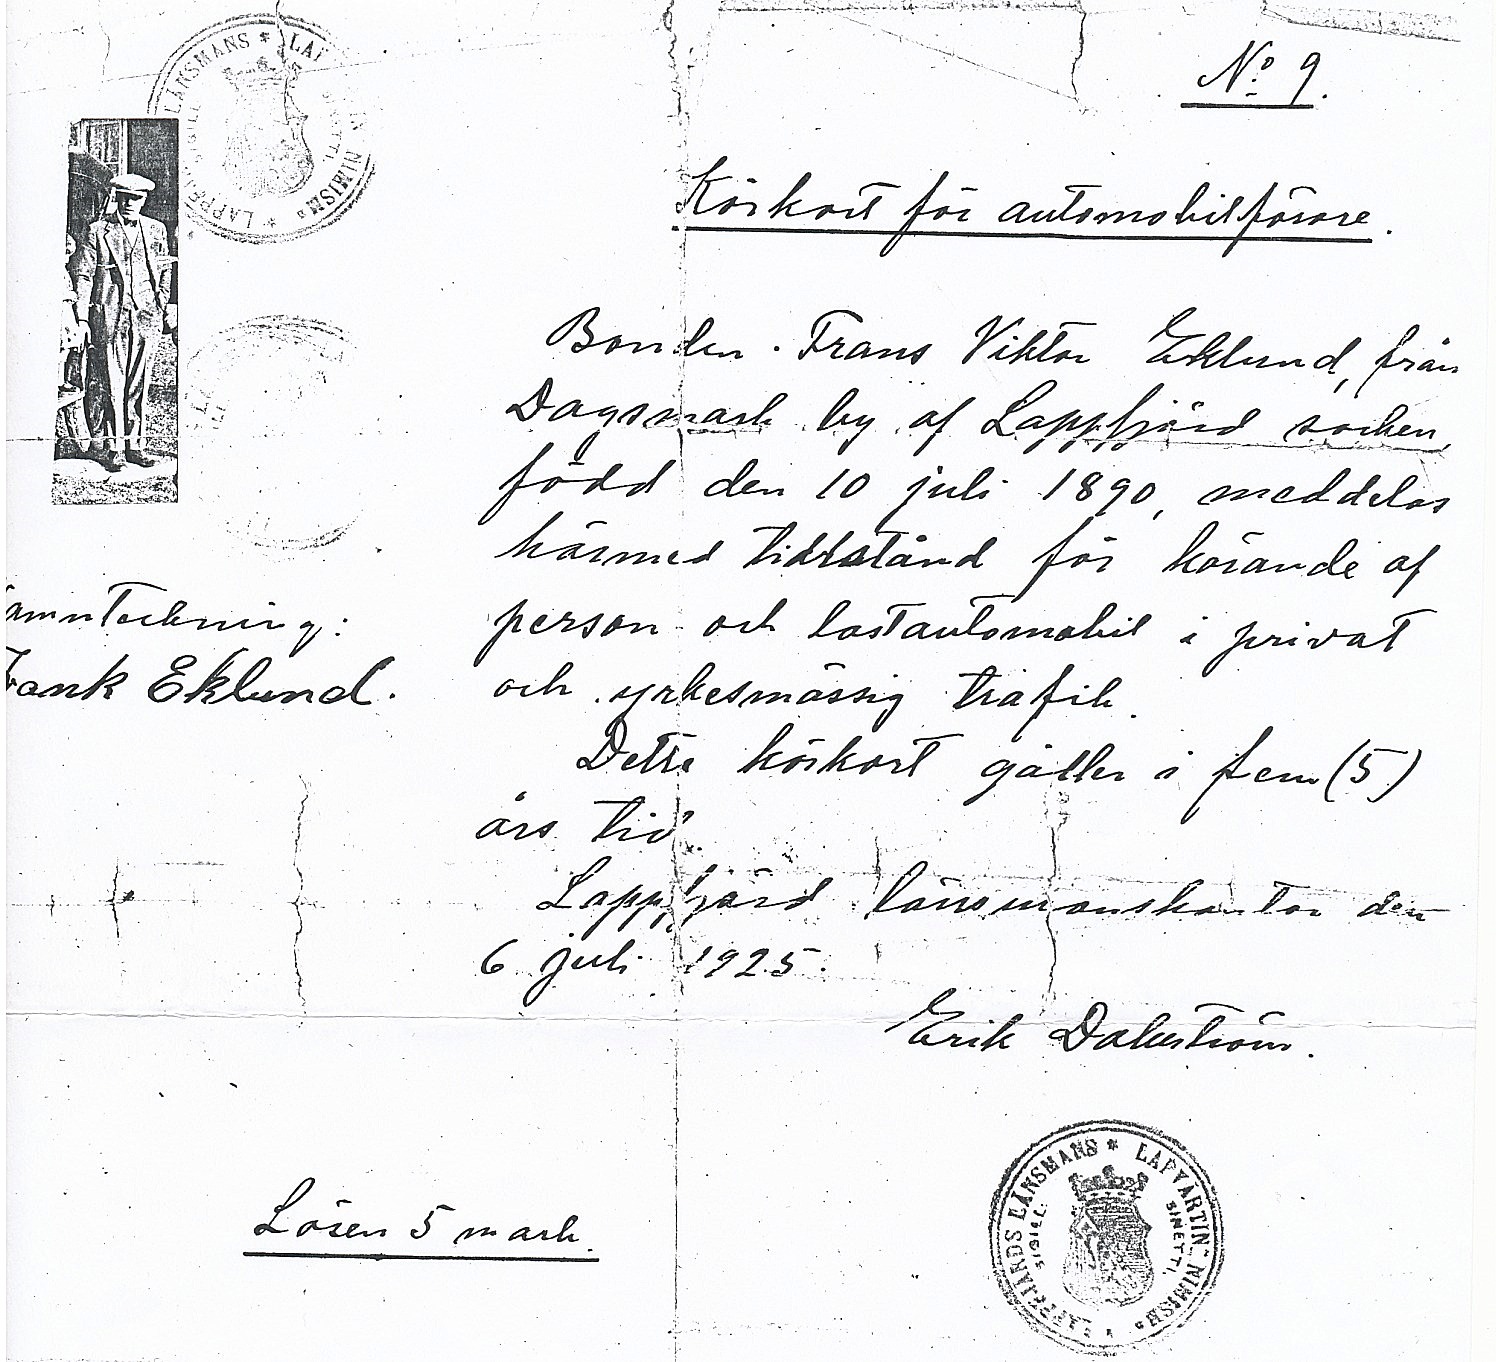 No 9.
Körkort för automobilförare.
Bonden Frans Viktor Eklund, från
Dagsmark by af Lappfjärd socken,
född den 10 juli 1890, meddelas
härmed tillstånd för körande af
person och lastautomobil i privat
och yrkesmässig trafik.
Detta körkort gäller i fem (5)
års tid.
Lappfjärd länsmanskontor den
6 juli 1925.
Erik Dahlström.
amnteckning:
Frank Eklund.
Lösen 5 mark.
LÄNSMANS * LAP
NIMISM.
LAPPFJÄRDS LÄNSMANS * LAPVÄRTIN NIMISM.
SIGILL. SINETTI.